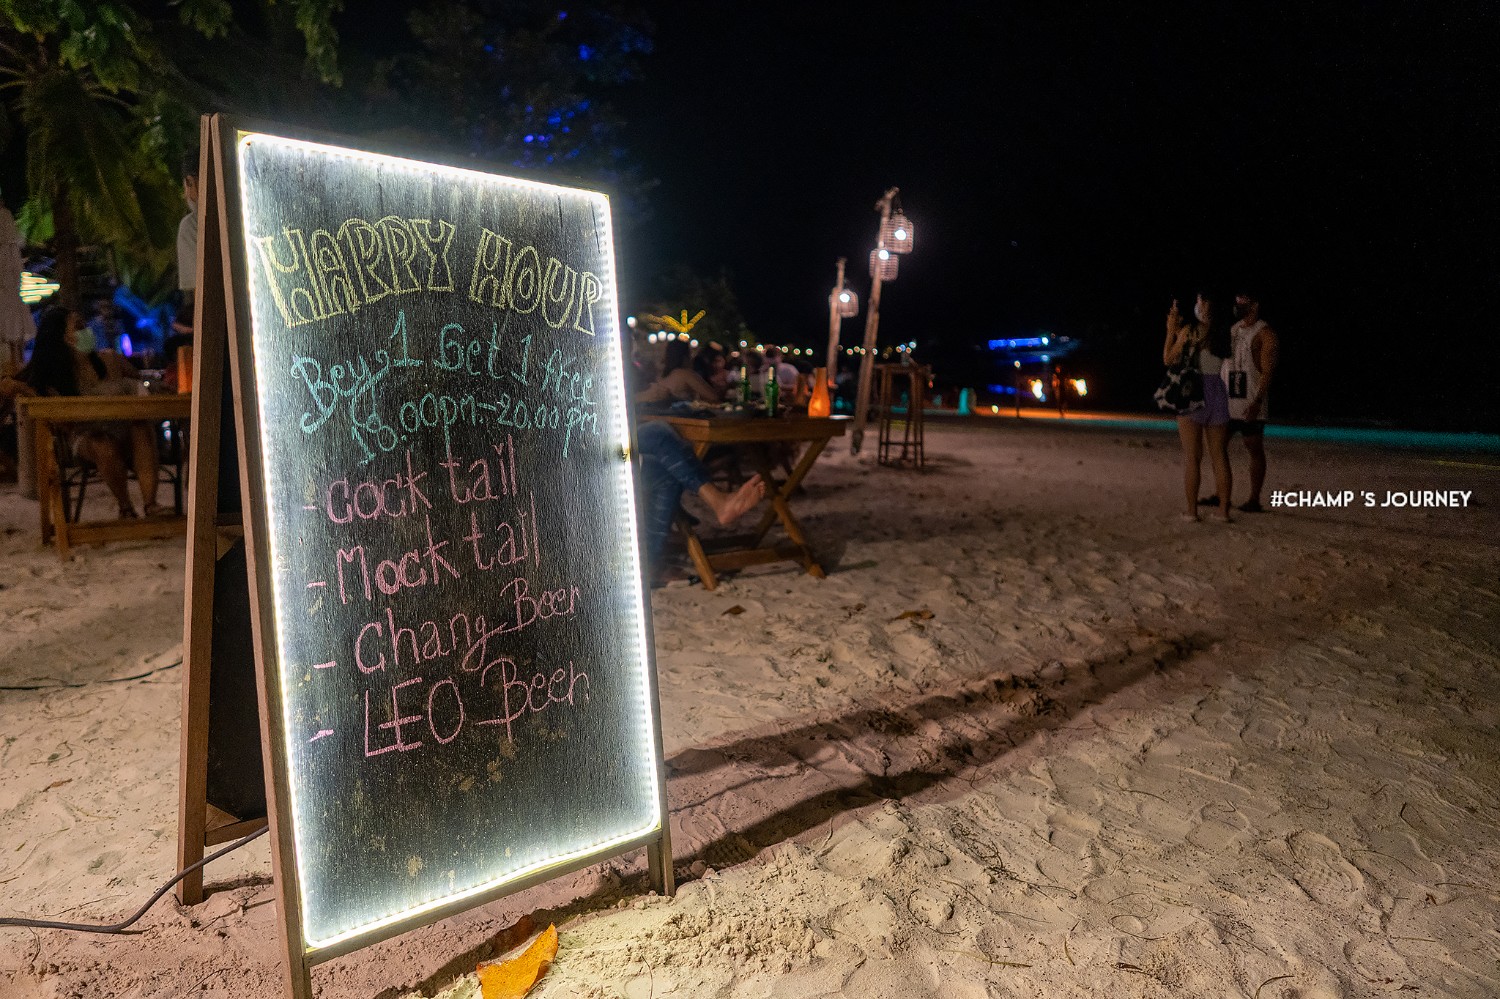 HAPPY HOUR
Bey 1 Get 1 free
18.00pm-20.00pm
- Cock tail
- Mock tail
- Chang Beer
- LEO Beer
#CHAMP 'S JOURNEY